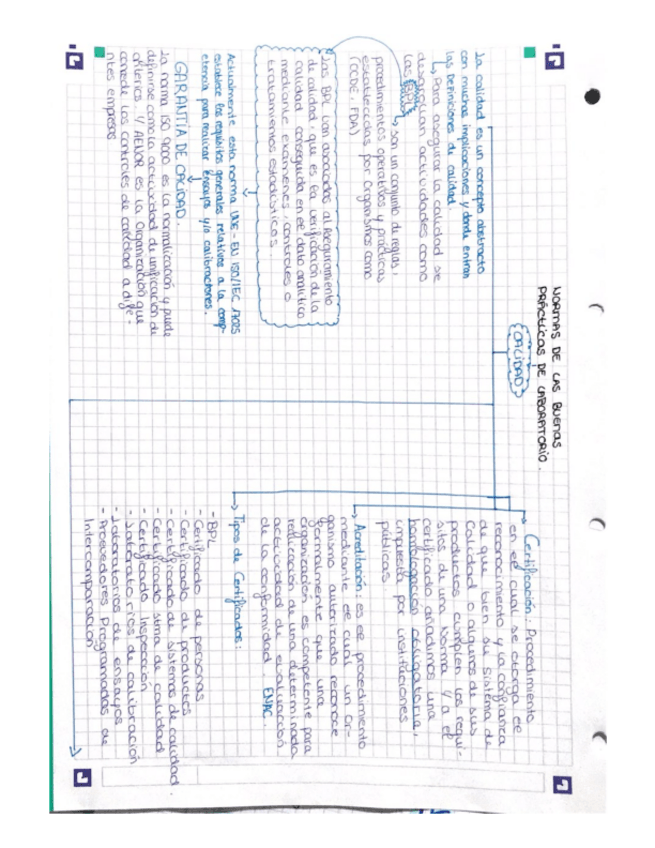 NORMAS DE LAS BUENAS
PRÁCTICAS DE LABORATORIO.
CALIDAD
La calidad es un concepto abstracto
con muchas implicaciones y donde entran
las definiciones de calidad.
↳ Para asegurar la calidad se
desarrollan actividades como
las BPL
↳ son un conjunto de reglas,
procedimientos operativos y prácticas
establecidas por Organismos como
(OCDE, FDA)
Las BPL van asociadas al Aseguramiento
de calidad, que es la verificación de la
calidad conseguida en el dato analítico
mediante exámenes, controles o
tratamientos estadísticos.
Actualmente esta norma UNE-EN ISO/IEC 17025
establece los requisitos generales relativos a la comp-
etencia para realizar Ensayos y/o calibraciones.
GARANTÍA DE CALIDAD.
La norma ISO 9000 es la normalización y puede
definirse como la actividad de unificación de
criterios. Y AENOR es la Organización que
concede los controles de calidad a dife-
ntes empresas
Certificación: Procedimiento
en el cual se otorga el
reconocimiento y la confianza
de que bien su sistema de
Calidad o algunos de sus
productos cumplen los requi-
sitos de una Norma. Y a el
certificado añadimos una
homologación obligatoria,
impuesta por instituciones
públicas.
↳ Acreditación: es el procedimiento
mediante el cual un Or-
ganismo autorizado reconoce
formalmente que una
organización es competente para
realización de una determinada
actividad de evaluación
de la conformidad. ENAC.
↳ Tipos de Certificados:
- BPL
- Cerificado de personas
- Certificado de productos
- Certificado de sistemas de calidad.
- Certificado sitma de calidad
- Certificado Inspección
- Laboratorios de calibración
- Laboratorios de ensayos
- Proevedores Programadas de
Intercomparación